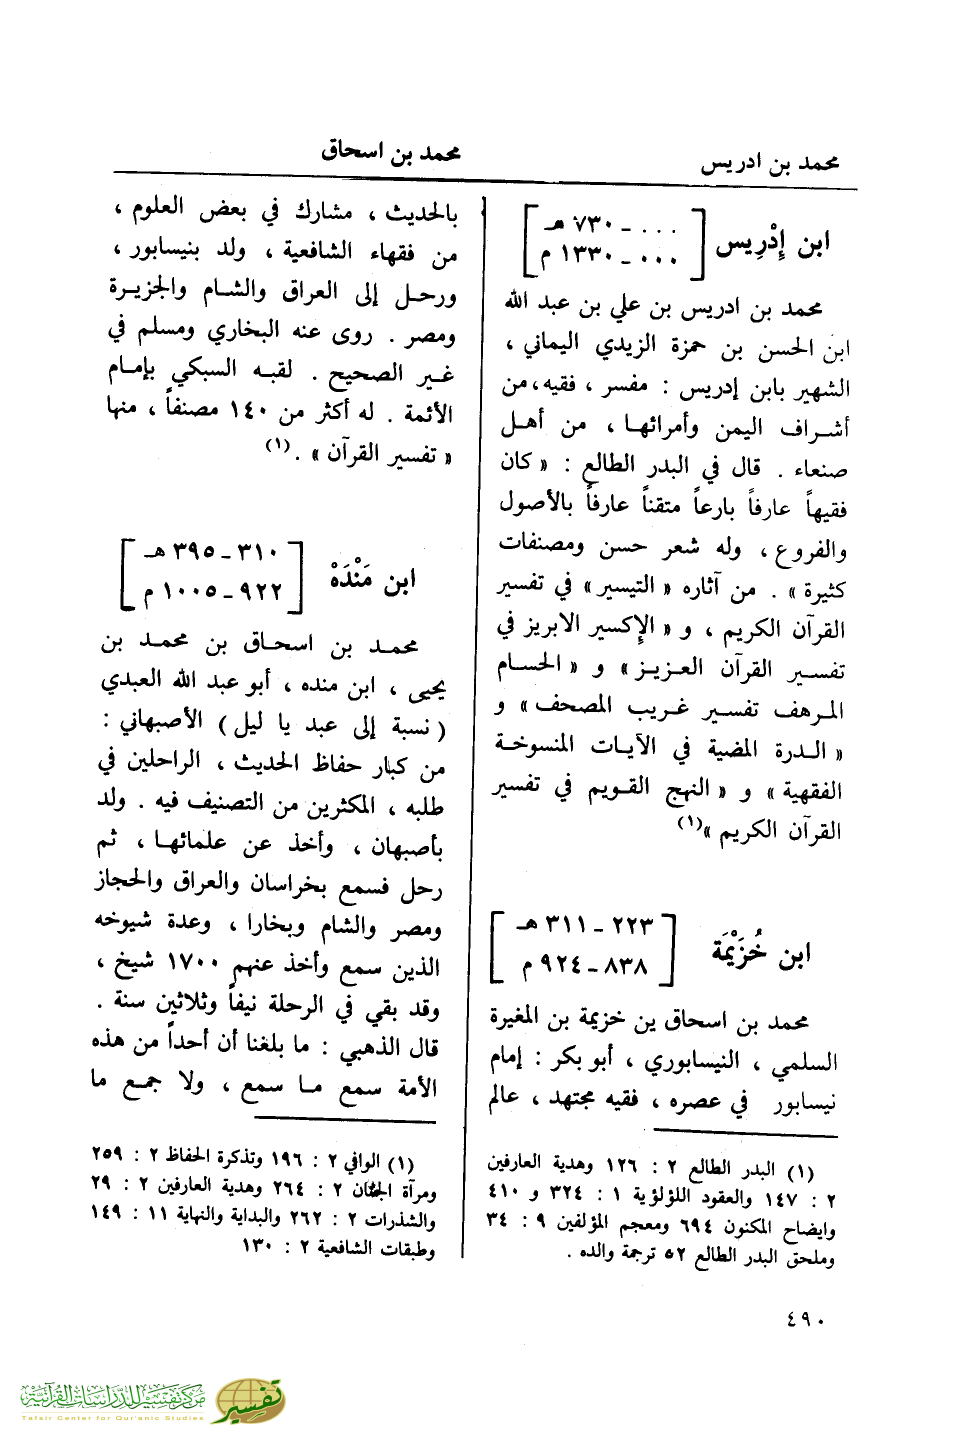 محمد بن ادريس
محمد بن اسحاق
ابن إدْرِيس
٠٠٠ ـ ٧٣٠ هـ
٠٠٠ ـ ١٣٣٠ م
محمد بن ادريس بن علي بن عبد الله
ابن الحسن بن حمزة الزيدي اليماني ،
الشهير بابن إدريس : مفسر ، فقيه ، من
أشراف اليمن وأمرائها ، من أهل
صنعاء . قال في البدر الطالع : « كان
فقيهاً عارفاً بارعاً متقناً عارفاً بالأصول
والفروع ، وله شعر حسن ومصنفات
كثيرة » . من آثاره « التيسير » في تفسير
القرآن الكريم ، و « الإكسير الابريز في
تفسير القرآن العزيز » و « الحسام
المرهف تفسير غريب المصحف » و
« الدرة المضية في الآيات المنسوخة
الفقهية » و « النهج القويم في تفسير
القرآن الكريم »(١)
ابن خُزَيْمَة
٢٢٣ ـ ٣١١ هـ
٨٣٨ ـ ٩٢٤ م
محمد بن اسحاق ين خزيمة بن المغيرة
السلمي ، النيسابوري ، أبو بكر : إمام
نيسابور في عصره ، فقيه مجتهد ، عالم
(١) البدر الطالع ٢ : ١٢٦ وهدية العارفين
٢ : ١٤٧ والعقود اللؤلؤية ١ : ٣٢٤ و ٤١٠
وايضاح المكنون ٦٩٤ ومعجم المؤلفين ٩ : ٣٤
وملحق البدر الطالع ٥٢ ترجمة والده .
بالحديث ، مشارك في بعض العلوم ،
من فقهاء الشافعية ، ولد بنيسابور ،
ورحل إلى العراق والشام والجزيرة
ومصر . روى عنه البخاري ومسلم في
غير الصحيح . لقبه السبكي بإمام
الأئمة . له أكثر من ١٤٠ مصنفاً ، منها
« تفسير القرآن » .(١)
ابن مَنْدَهْ
٣١٠ ـ ٣٩٥ هـ
٩٢٢ ـ ١٠٠٥ م
محمد بن اسحاق بن محمد بن
يحيى ، ابن منده ، أبو عبد الله العبدي
( نسبة إلى عبد يا ليل ) الأصبهاني :
من كبار حفاظ الحديث ، الراحلين في
طلبه ، المكثرين من التصنيف فيه . ولد
بأصبهان ، وأخذ عن علمائها ، ثم
رحل فسمع بخراسان والعراق والحجاز
ومصر والشام وبخارا ، وعدة شيوخه
الذين سمع وأخذ عنهم ١٧٠٠ شيخ ،
وقد بقي في الرحلة نيفاً وثلاثين سنة .
قال الذهبي : ما بلغنا أن أحداً من هذه
الأمة سمع ما سمع ، ولا جمع ما
(١) الوافي ٢ : ١٩٦ وتذكرة الحفاظ ٢ : ٢٥٩
ومرآة الجنان ٢ : ٢٦٤ وهدية العارفين ٢ : ٢٩
والشذرات ٢ : ٢٦٢ والبداية والنهاية ١١ : ١٤٩
وطبقات الشافعية ٢ : ١٣٠
٤٩٠
مركز تفسير للدراسات القرآنية
Tafsir Center for Qur'anic Studies
تفسير